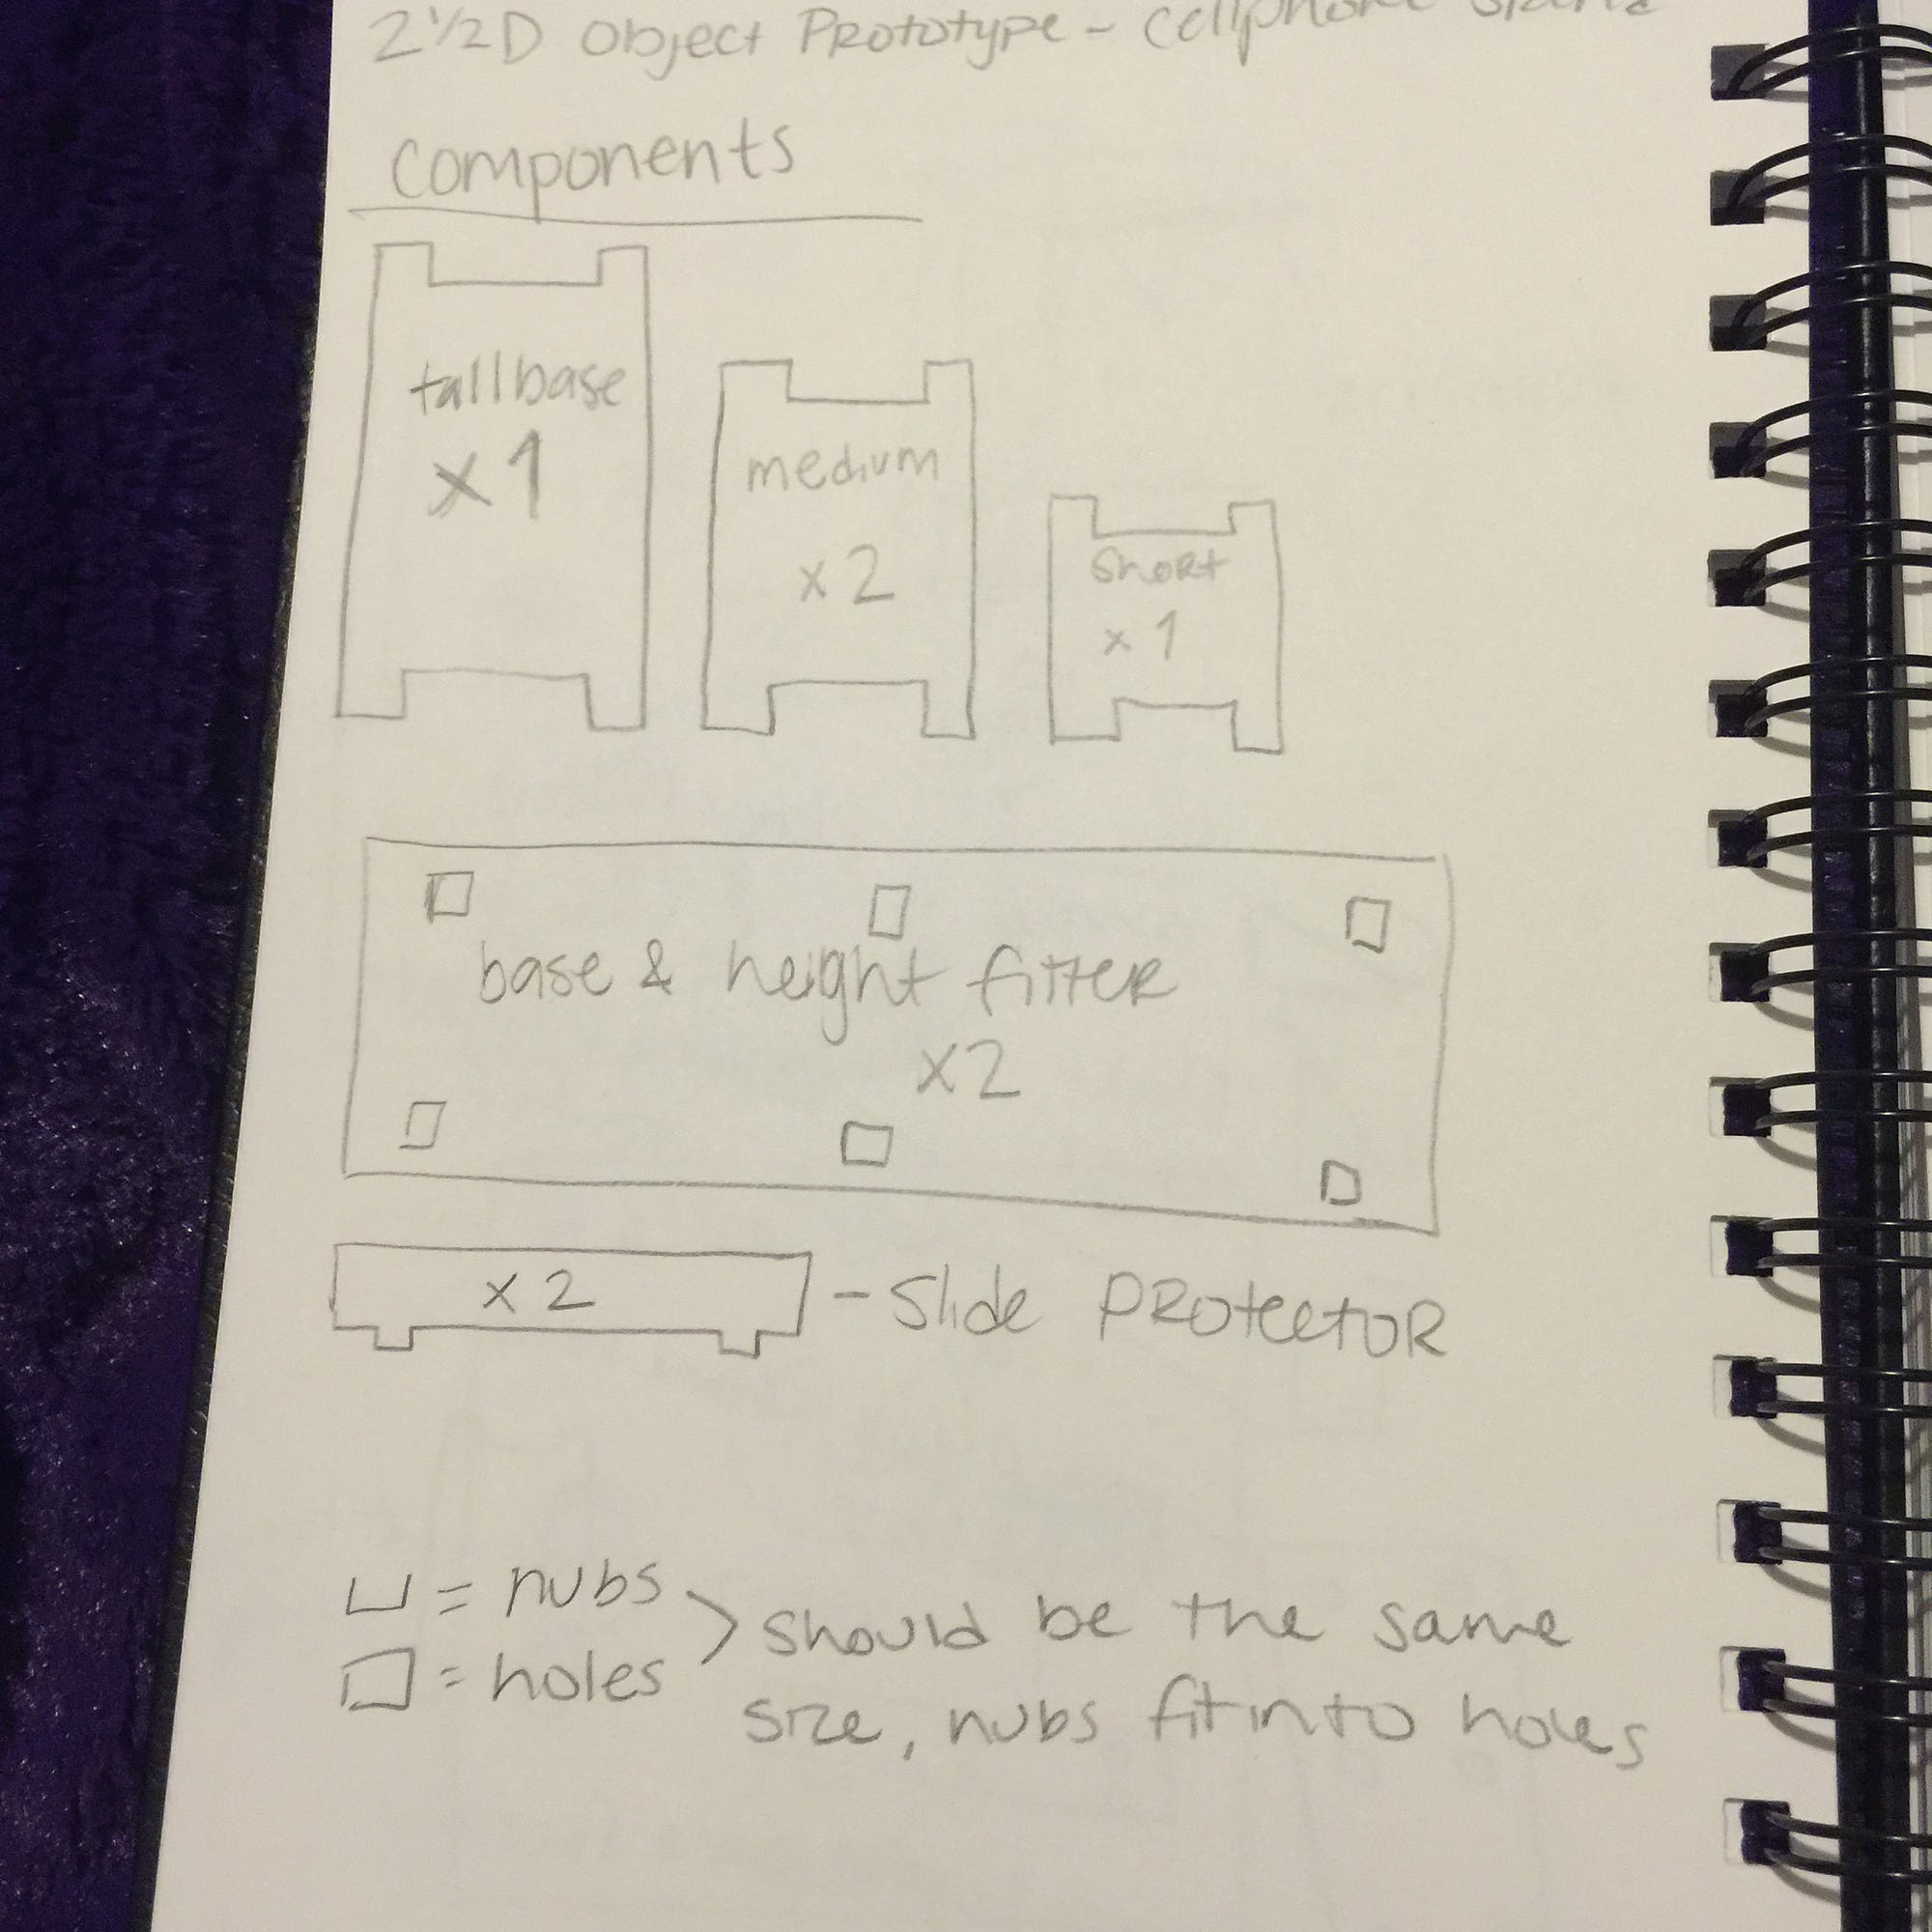 2 1/2 D Object Prototype - Cellphone Stand
Components
tall base
x 1
medium
x 2
short
x 1
base & height fitter
x2
x 2 - Slide PROtectOR
= nubs
= holes
> should be the same
size, nubs fit into holes